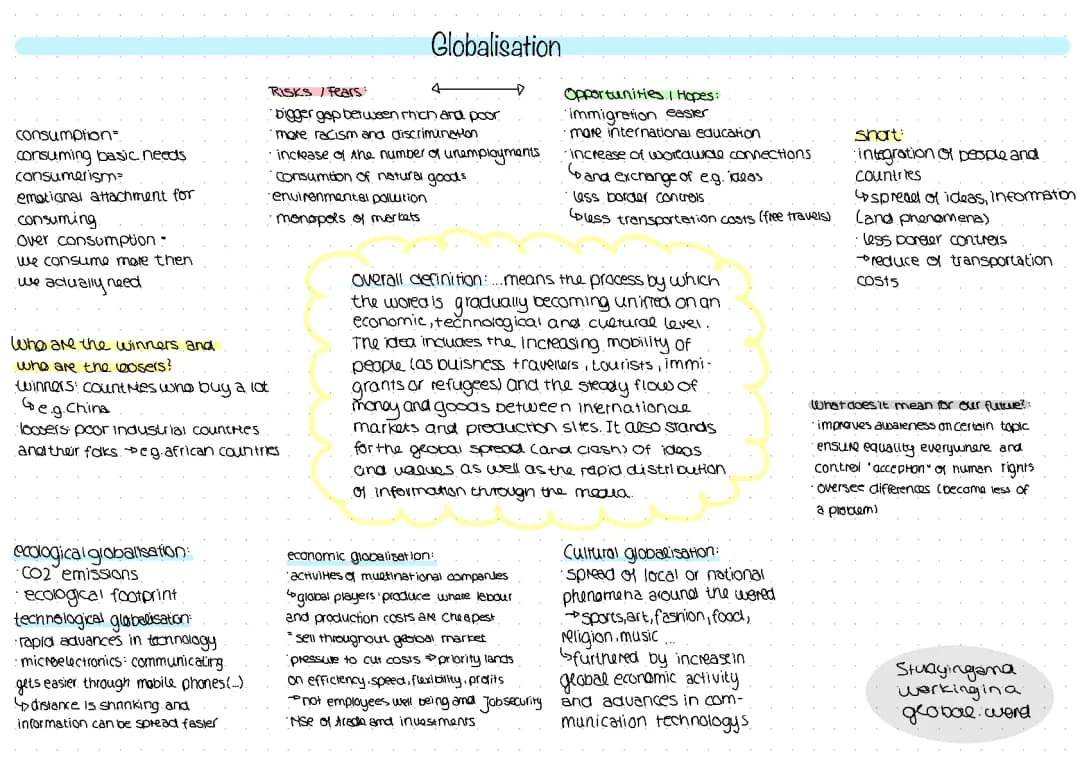 Globalisation
Risks / Fears:
· bigger gap between rhich and poor
· more racism and discrimination
· increase of the number of unemployments
· consumtion of natural goods
· environmental pollution
· monopols of markets
Opportunities / Hopes:
· immigration easier
· more international education
· increase of worldwide connections
↳ and exchange of e.g. ideas
· less border controls
↳ less transportation costs (free travels)
short:
· integration of people and
countries
↳ spread of ideas, information
(and phenomena)
· less border controls
→ reduce of transportation
costs
consumption=
consuming basic needs
consumerism=
emotional attachment for
consuming
over consumption=
we consume more then
we actually need
overall definition: ...means the process by which
the world is gradually becoming unified on an
economic, technological and cultural level.
The idea includes the increasing mobility of
people (as buisness travellers, tourists, immi-
grants or refugees) and the steady flow of
money and goods between inernational
markets and production sites. It also stands
for the global spread (and clash) of ideas
and values as well as the rapid distribution
of information through the media.
Who are the winners and
who are the loosers?
winners: countries who buy a lot
↳ e.g. China
loosers: poor industrial countries
and their folks → e.g. african countries
What does it mean for our future?
· improves awareness on certain topic
· ensure equality everywhere and
control "acception" of human rights
· oversee differences (become less of
a problem)
ecological globalisation:
· CO2 emissions
· ecological footprint
technological globalisation:
· rapid advances in technology
· microelectronics: communicating
gets easier through mobile phones (...)
↳ distance is shrinking and
information can be spread faster
economic globalisation:
· activities of multinational companies
↳ global players: produce where labour
and production costs are cheapest
" sell throughout global market
· pressure to cut costs → priority lands
on efficiency, speed, flexibility, profits
→ not employees well being and job security
· rise of trade and investments
Cultural globalisation:
· spread of local or national
phenomena around the world
→ sports, art, fashion, food,
religion, music ...
↳ furthered by increase in
global economic activity
and advances in com-
munication technologys
Studying and
working in a
global word